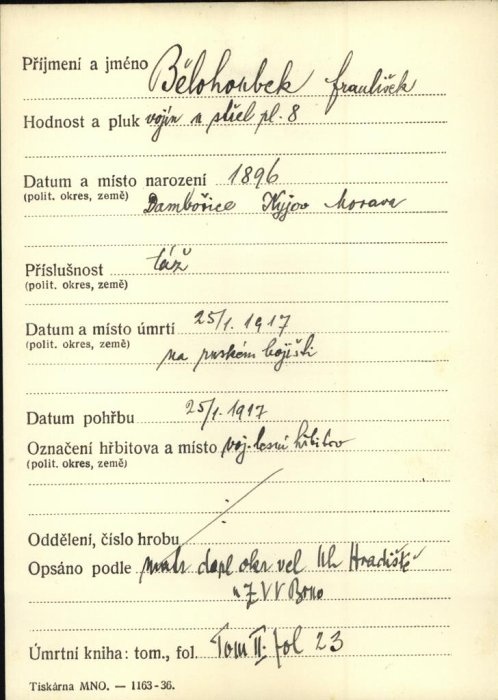 Příjmení a jméno Bělohoubek František
Hodnost a pluk vojín u střel pl. 8
Datum a místo narození 1896
(polit. okres, země) Dambořice Kyjov Morava
Příslušnost táž
(polit. okres, země)
Datum a místo úmrtí 25/1. 1917
(polit. okres, země) na ruském bojišti
Datum pohřbu 25/1. 1917
Označení hřbitova a místo voj. lesní hřbitov
(polit. okres, země)
Oddělení, číslo hrobu
Opsáno podle matr dopl okr vel Uh Hradiště
ZVV Brno
Úmrtní kniha: tom., fol. Tom II. fol 23
Tiskárna MNO. — 1163-36.